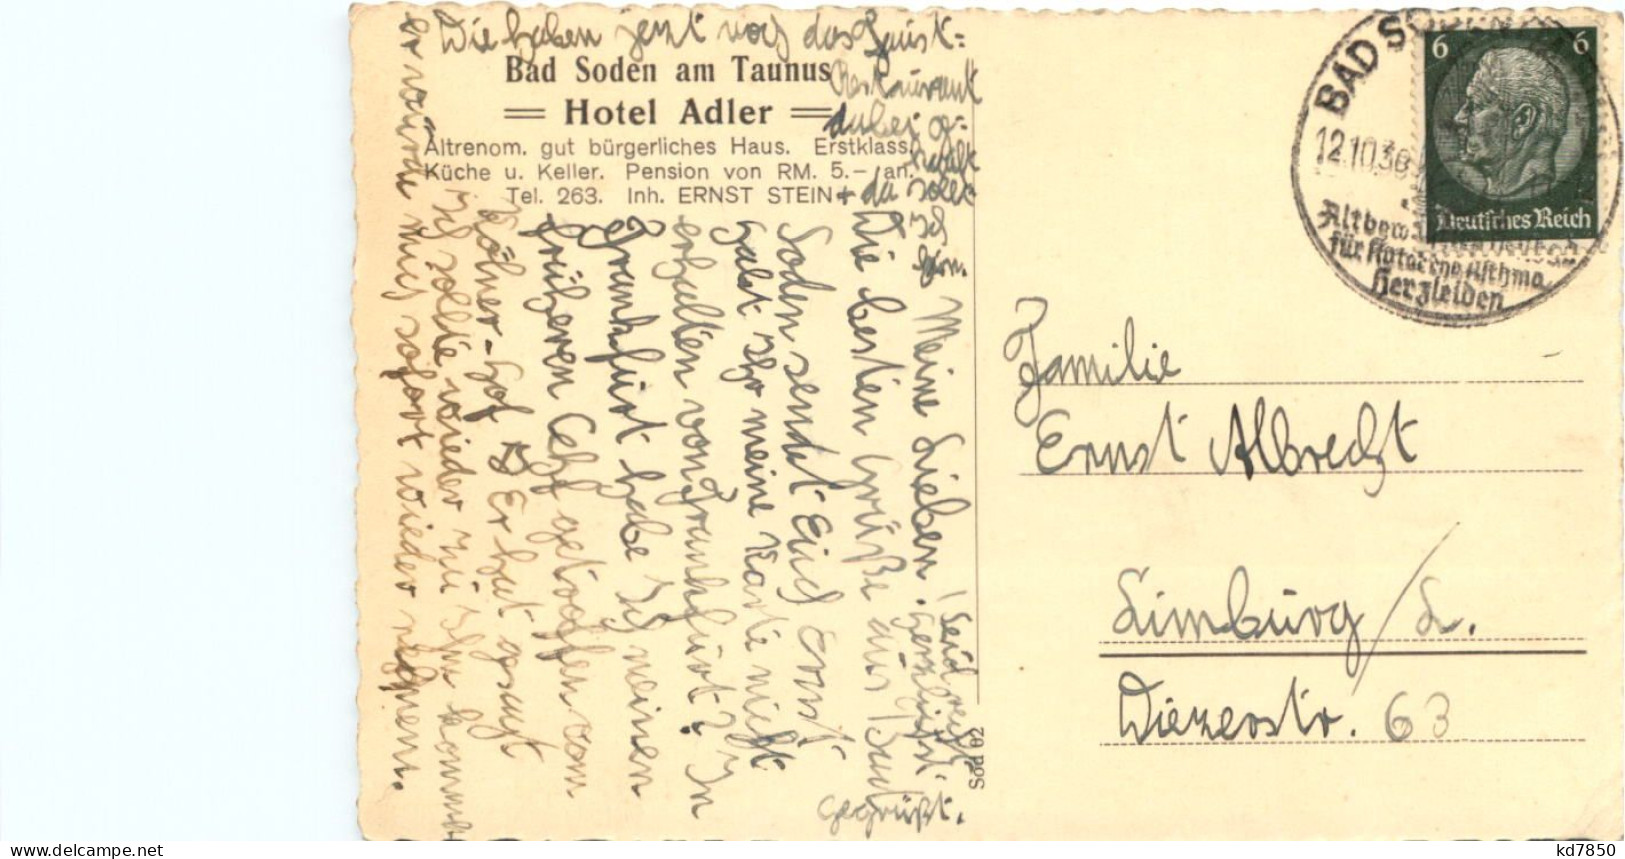 Die haben jetzt noch das Haupt=
Restaurant
dabei ge-
+ da sollt
ich
hin.
Bad Soden am Taunus
= Hotel Adler =
Altrenom. gut bürgerliches Haus. Erstklass.
Küche u. Keller. Pension von RM. 5.- an.
Tel. 263. Inh. ERNST STEIN
Meine Lieben!
Die besten Grüße aus Bad
Soden sendet Euch Ernst
Habt Ihr meine Karte nicht
erhalten von Frankfurt? In
Frankfurt habe Ich meinen
früheren Chef getroffen vom
Hof Er hat gesagt
Ich sollte wieder zu Ihm kommen
er würde mich sofort wieder nehmen.
Seid recht
herzlichst
gegrüßt.
Sod 202
BAD S
12.10.36
für Katarrhe Asthma
Herzleiden
6 6
Deutsches Reich
Familie
Ernst Albrecht
Limburg/L.
Diezerstr. 63
kd7850